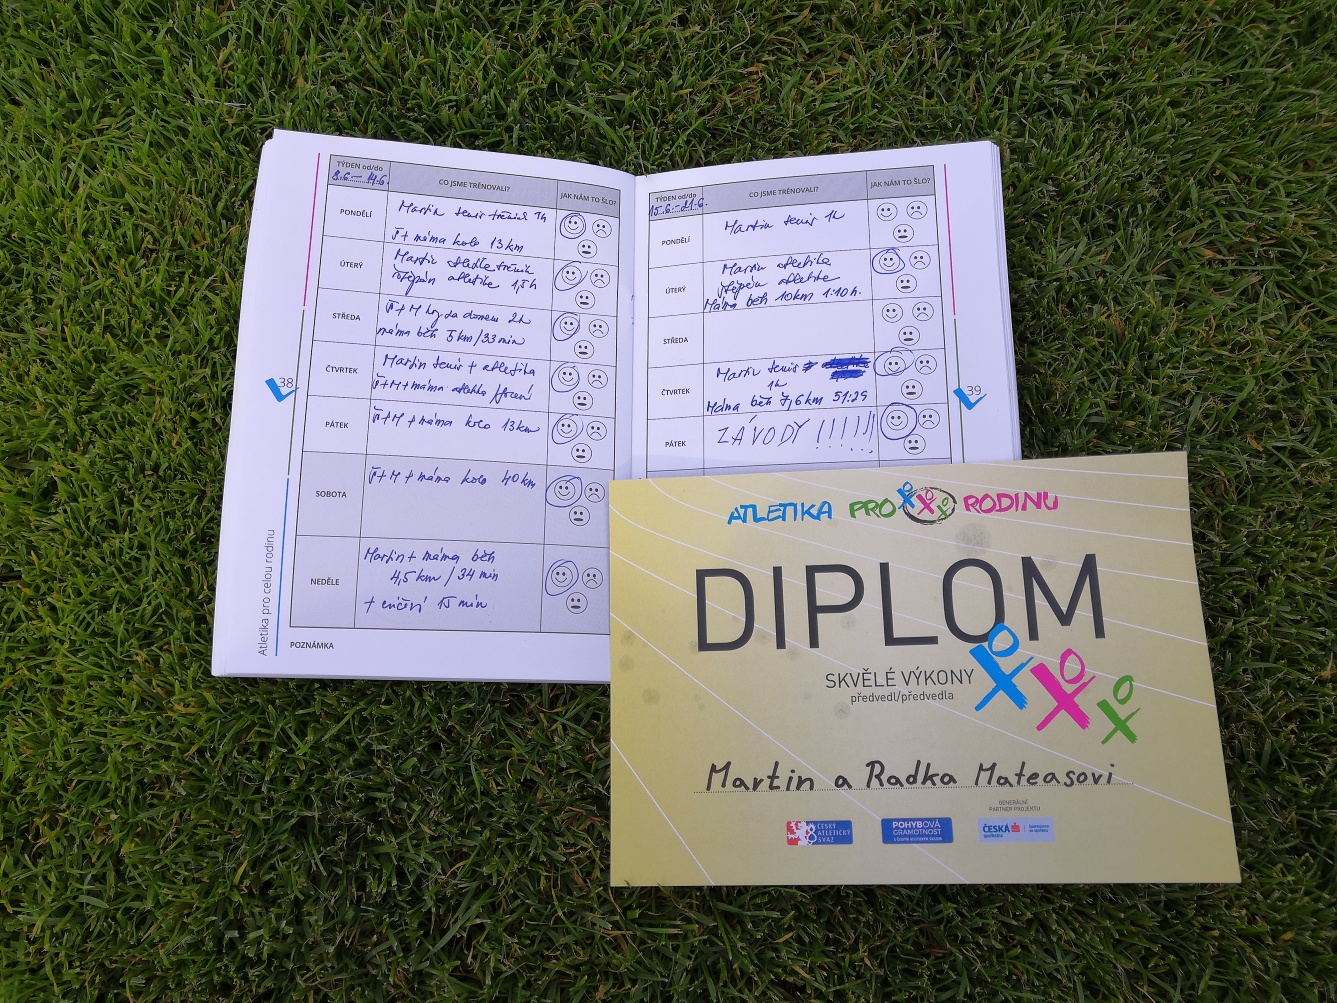 TÝDEN od/do
8.6. - 14.6.
CO JSME TRÉNOVALI?
JAK NÁM TO ŠLO?
PONDĚLÍ
Martin tenis trénink 1h
Š+máma kolo 13km
ÚTERÝ
Martin trénink
Štěpán atletika 1,5h
STŘEDA
Š+M 2h
máma běh 5km/33min
ČTVRTEK
Martin tenis + atletika
Š+M+máma atletika /focení
PÁTEK
Š+M+máma kolo 13km
SOBOTA
Š+M+máma kolo 40km
NEDĚLE
Martin+máma běh
4,5km/34min
+ cvičení 15min
POZNÁMKA
38
Atletika pro celou rodinu
TÝDEN od/do
15.6.-21.6.
CO JSME TRÉNOVALI?
JAK NÁM TO ŠLO?
PONDĚLÍ
Martin tenis 1h
ÚTERÝ
Martin atletika
Štěpán atletika
Máma běh 10km 1:10h.
STŘEDA
ČTVRTEK
Martin tenis
1h
Máma běh 7,6km 51:29
PÁTEK
ZÁVODY !!!!!!
39
ATLETIKA PRO RODINU
DIPLOM
SKVĚLÉ VÝKONY
předvedl/předvedla
Martin a Radka Mateasovi
GENERÁLNÍ
PARTNER PROJEKTU
ČESKÝ
ATLETICKÝ
SVAZ
POHYBOVÁ
GRAMOTNOST
ČESKÁ
spořitelna